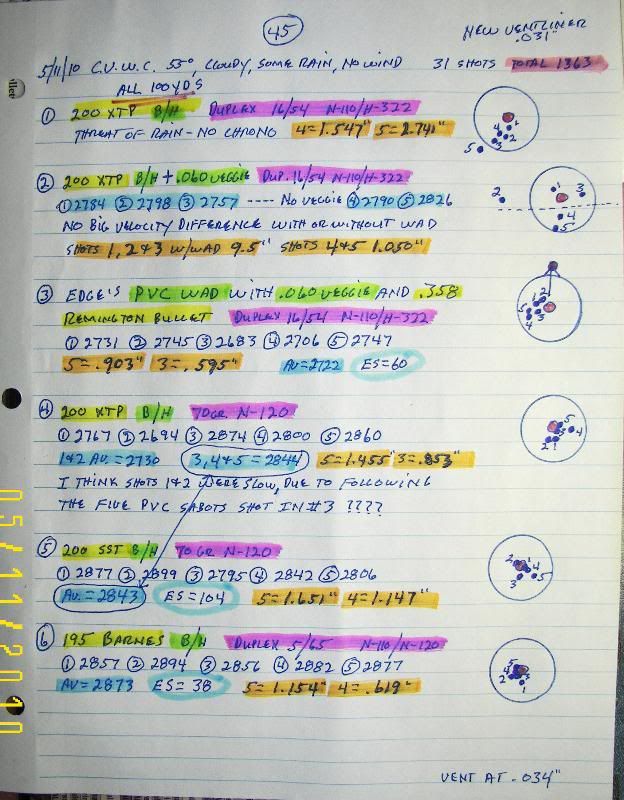 45
NEW VENTLINER
.031"
5/11/10 C.V.W.C. 55°, CLOUDY, SOME RAIN, NO WIND 31 SHOTS TOTAL 1363
ALL 100 YD'S
① 200 XTP B/H DUPLEX 16/54 N-110/H-322
THREAT OF RAIN - NO CHRONO 4=1.547" 5=2.741"
4 1 3 2 5
② 200 XTP B/H + .060 VEGGIE DUP. 16/54 N-110/H-322
① 2784 ② 2798 ③ 2757 ---- NO VEGGIE ④ 2790 ⑤ 2826
NO BIG VELOCITY DIFFERENCE WITH OR WITHOUT WAD
SHOTS 1,2&3 W/WAD 9.5" SHOTS 4&5 1.050"
2 1 3 4 5
③ EDGE'S PVC WAD WITH .060 VEGGIE AND .358
REMINGTON BULLET DUPLEX 16/54 N-110/H-322
① 2731 ② 2745 ③ 2683 ④ 2706 ⑤ 2747
5=.903" 3=.595" AV=2722 ES=60
1 2 5 3 4
④ 200 XTP B/H 70GR. N-120
① 2767 ② 2694 ③ 2874 ④ 2800 ⑤ 2860
1&2 AV.=2730 3,4&5=2844 5=1.455" 3=.853"
I THINK SHOTS 1&2 WERE SLOW, DUE TO FOLLOWING
THE FIVE PVC SABOTS SHOT IN #3 ????
5 3 4 2 1
⑤ 200 SST B/H 70GR N-120
① 2877 ② 2899 ③ 2795 ④ 2842 ⑤ 2806
AV.=2843 ES=104 5=1.651" 4=1.147"
2 1 4 3 5
⑥ 195 BARNES B/H DUPLEX 5/65 N-110/N-120
① 2857 ② 2894 ③ 2856 ④ 2882 ⑤ 2877
AV=2873 ES=38 5=1.154" 4=.619"
5 4 3 2 1
VENT AT .034"
05/11/2010